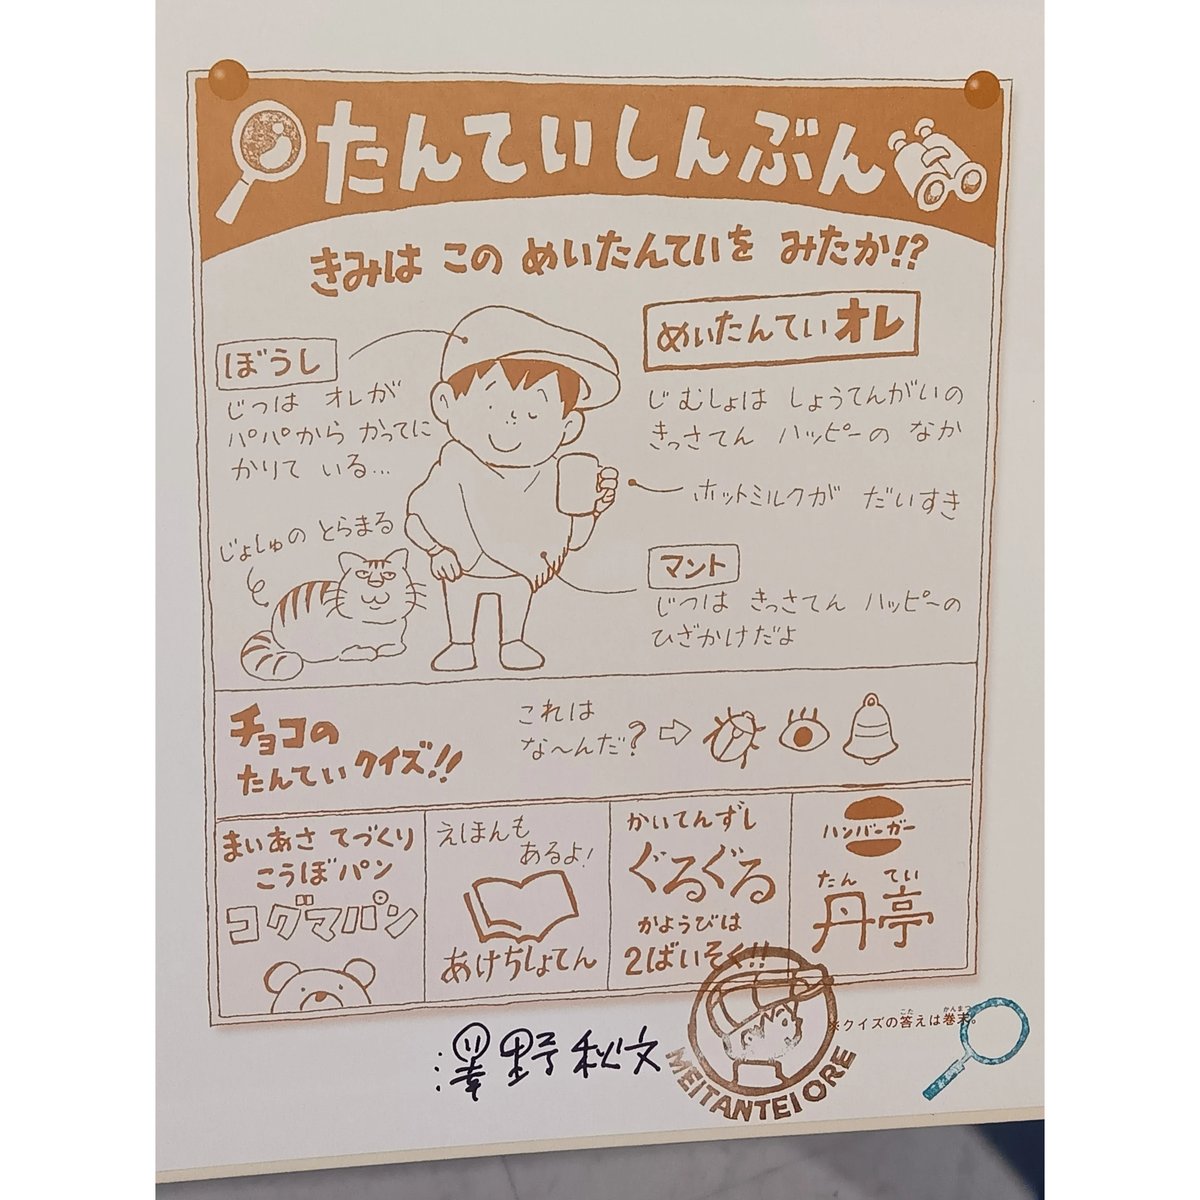 たんていしんぶん
きみは この めいたんていを みたか!?
ぼうし
じつは オレが
パパから かってに
かりて いる…
めいたんていオレ
じむしょは しょうてんがいの
きっさてん ハッピーの なか
ホットミルクが だいすき
じょしゅの とらまる
マント
じつは きっさてん ハッピーの
ひざかけだよ
チョコの
たんていクイズ!!
これは
な〜んだ?
まいあさ てづくり
こうぼパン
コグマパン
えほんも
あるよ!
あけちしょてん
かいてんずし
ぐるぐる
かようびは
2ばいそく!!
ハンバーガー
たん てい
丹亭
こた かんまつ
※クイズの答えは巻末。
澤野秋文
MEITANTEI ORE